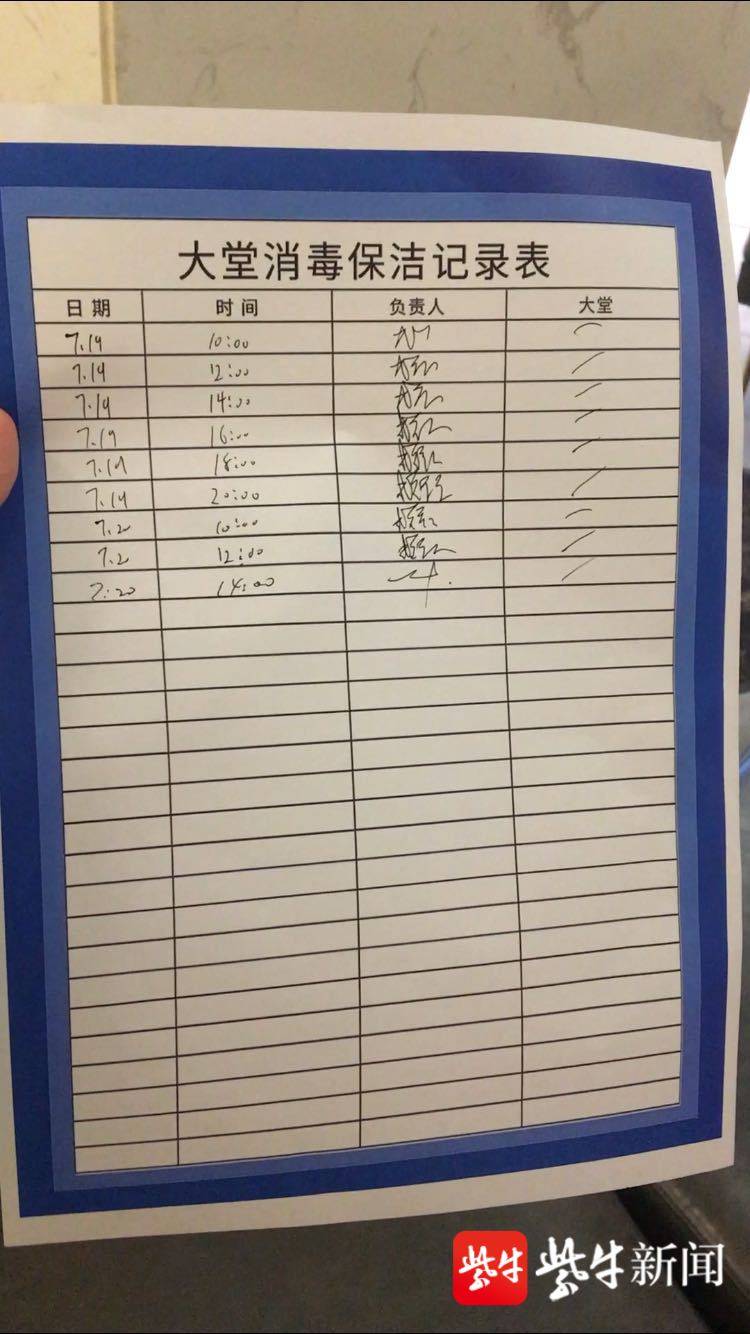 大堂消毒保洁记录表
日期 时间 负责人 大堂
7.19 10:00
7.19 12:00
7.19 14:00
7.19 16:00
7.19 18:00
7.19 20:00
7.20 10:00
7.2 12:00
7.20 14:00
紫牛 紫牛新闻